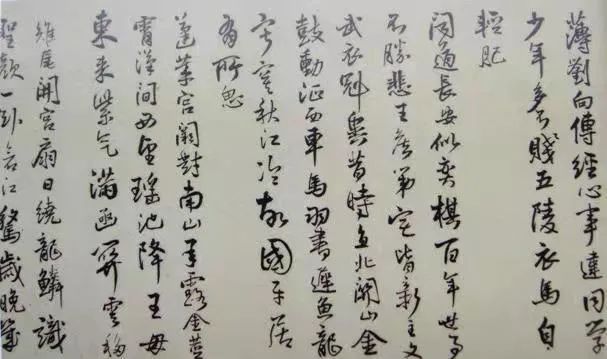 薄劉向傳經心事違同學
少年多不賤五陵衣馬自
輕肥
聞道長安似奕棋百年世事
不勝悲王侯第宅皆新主文
武衣冠異昔時直北關山金
鼓動征西車馬羽書遲魚龍
寂寞秋江冷故國平居
有所思
蓬萊宮闕對南山承露金莖
霄漢間西望瑤池降王母
東來紫气滿函關雲移
雉尾開宮扇日繞龍鱗識
聖顏一臥滄江驚歲晚幾